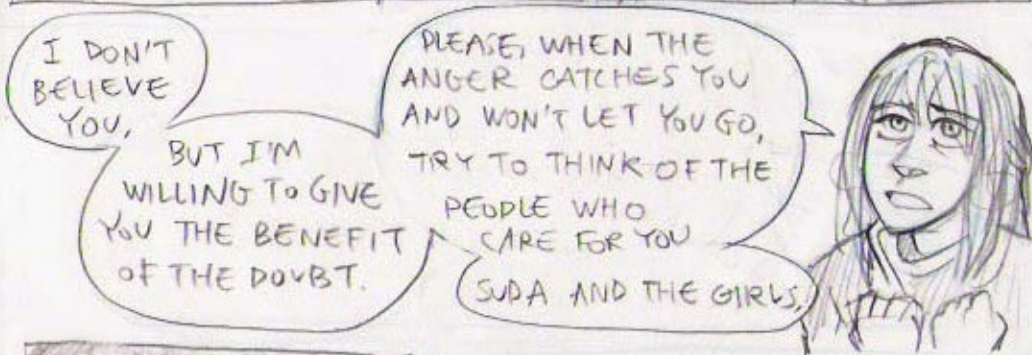 I DON'T
BELIEVE
YOU,
BUT I'M
WILLING TO GIVE
YOU THE BENEFIT
OF THE DOUBT.
PLEASE, WHEN THE
ANGER CATCHES YOU
AND WON'T LET YOU GO,
TRY TO THINK OF THE
PEOPLE WHO
CARE FOR YOU
SUDA AND THE GIRLS.